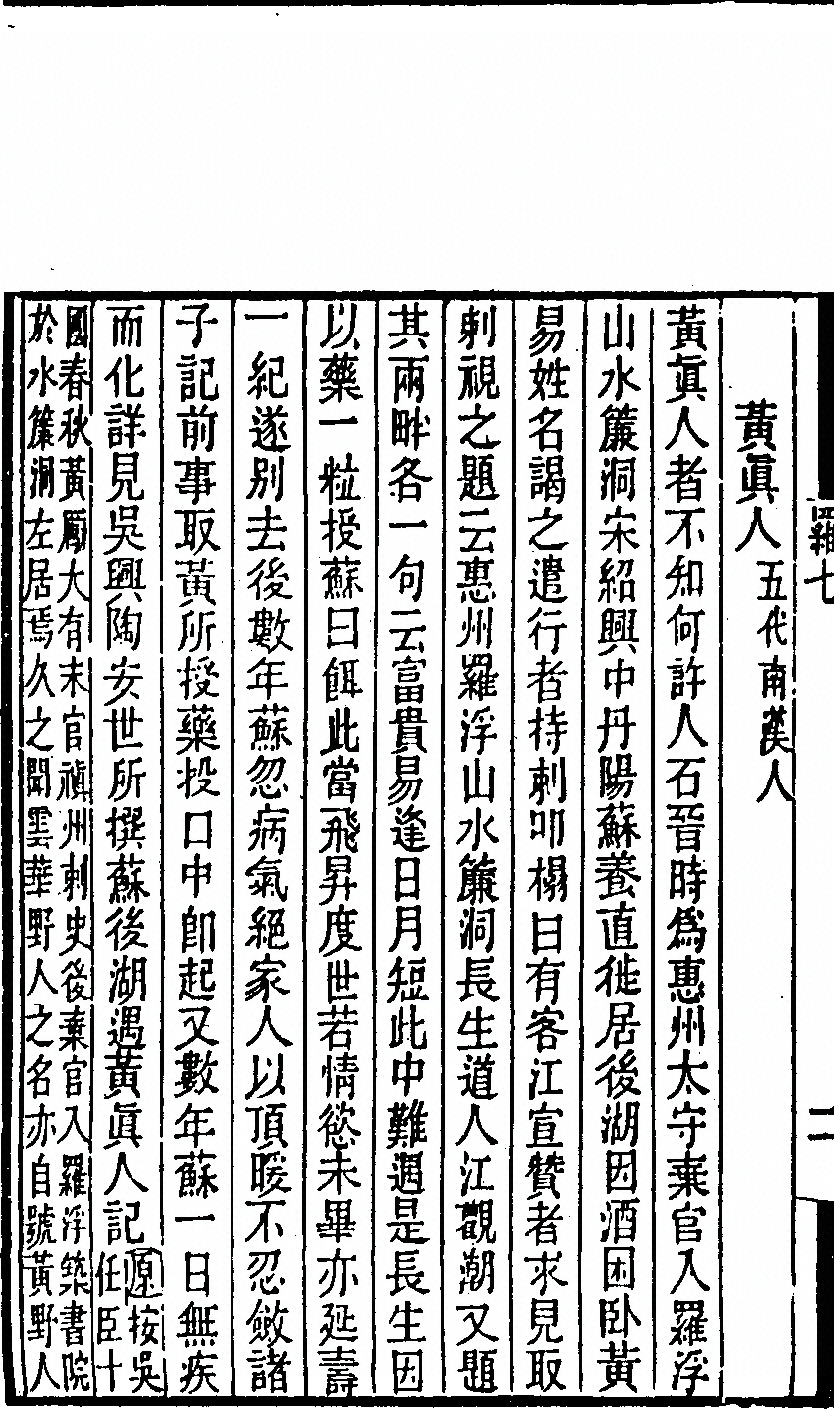 羅七
二
黃眞人五代南漢人
黃眞人者不知何許人石晉時爲惠州太守棄官入羅浮
山水簾洞宋紹興中丹陽蘇養直徙居後湖因酒困卧黃
易姓名謁之遣行者持剌叩榻曰有客江宣贊者求見取
剌視之題云惠州羅浮山水簾洞長生道人江觀潮又題
其兩畔各一句云富貴易逢日月短此中難遇是長生因
以藥一粒授蘇曰餌此當飛昇度世若情慾未畢亦延壽
一紀遂别去後數年蘇忽病氣絕家人以頂暖不忍斂諸
子記前事取黃所授藥投口中卽起又數年蘇一日無疾
而化詳見吳興陶安世所撰蘇後湖遇黃眞人記原按吳任臣十
國春秋黃勵大有末官禎州刺史後棄官入羅浮築書院
於水簾洞左居焉久之聞雲華野人之名亦自號黃野人